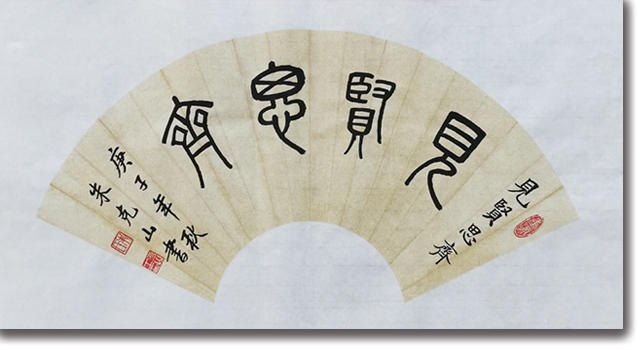 見賢思齊
見賢思齊
庚子年秋
朱克山書